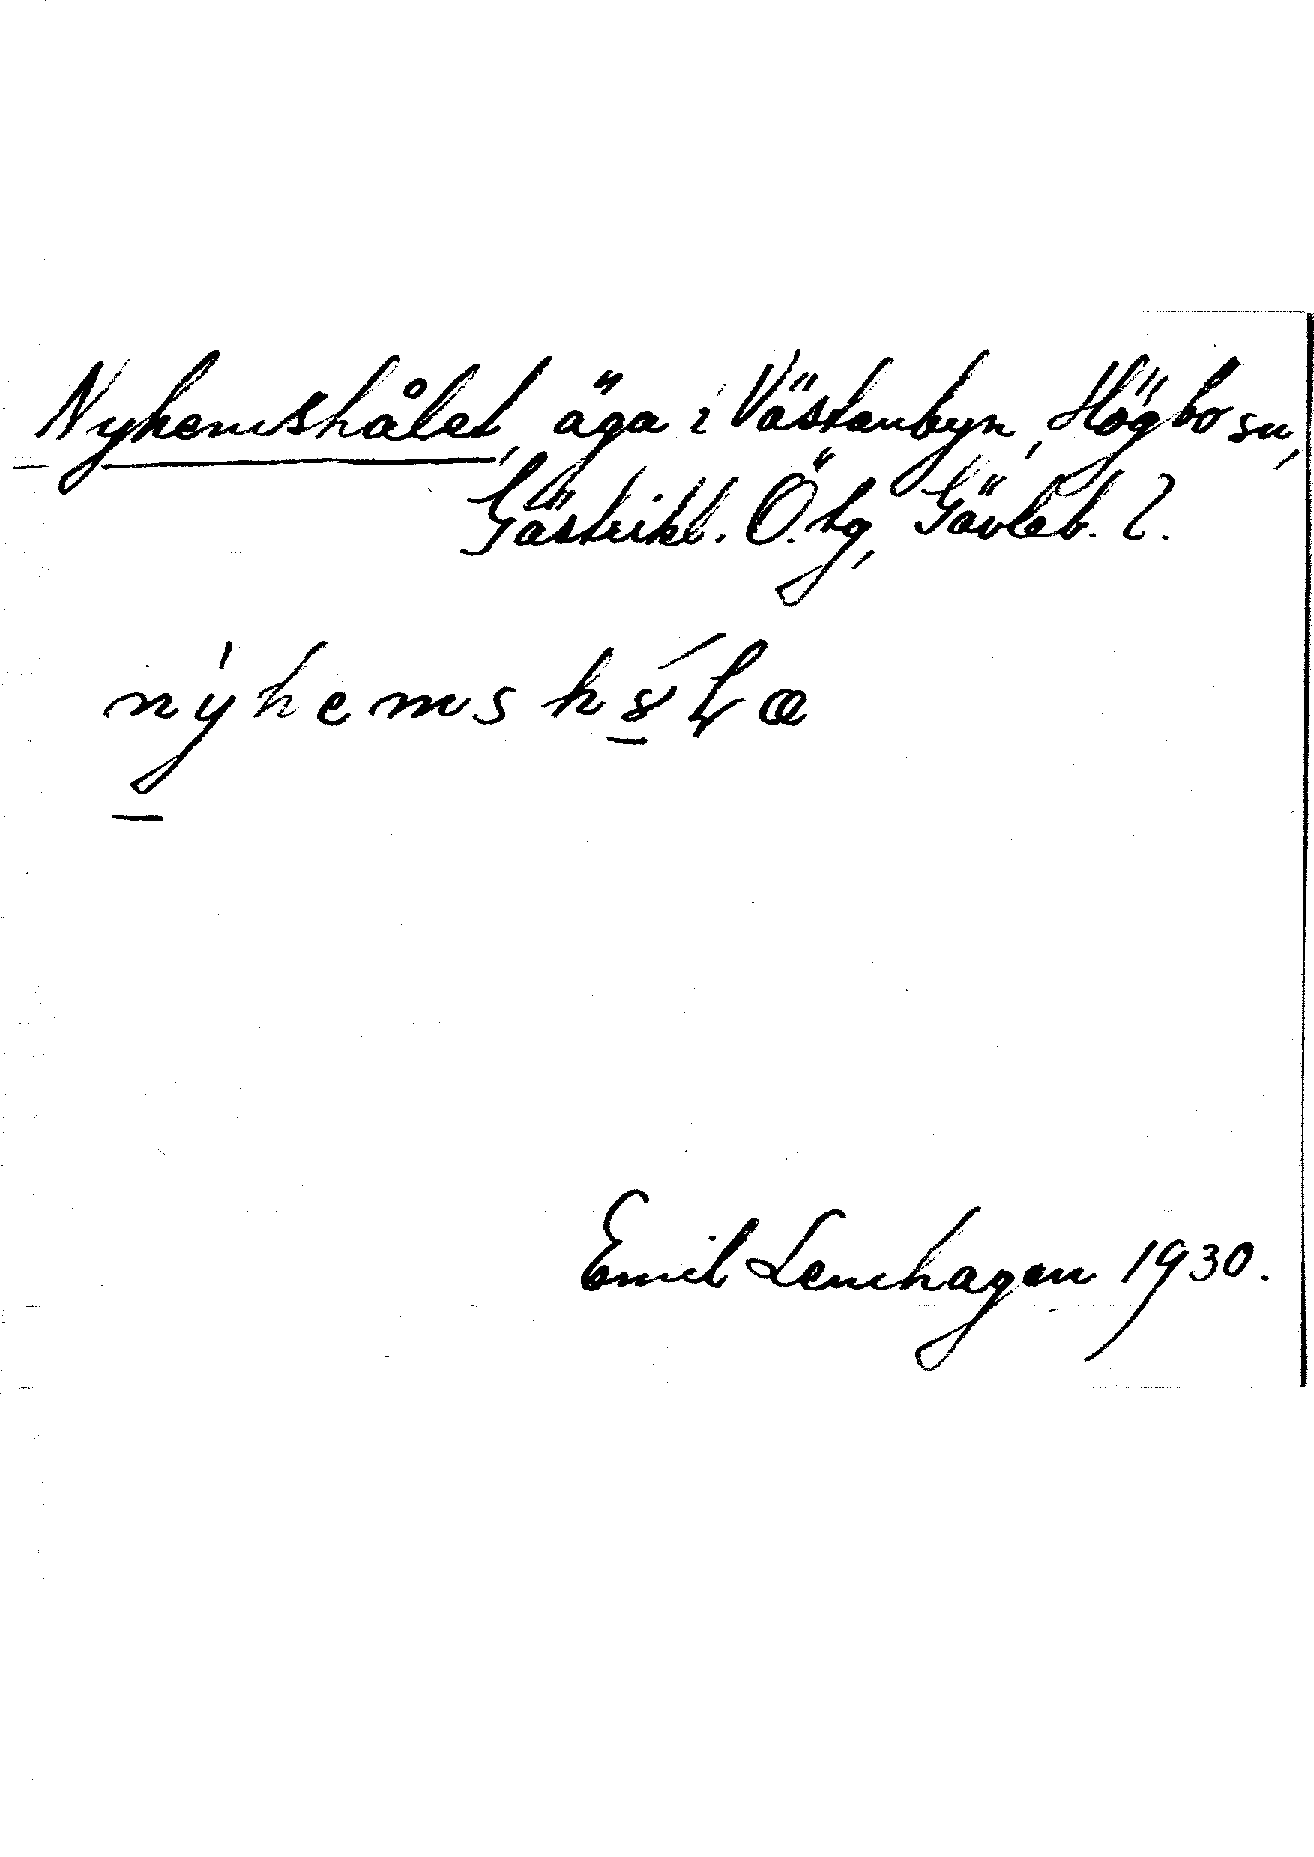 Nyhemshålet, äga i Västanbyn, Högbo sn,
Gästrikl. Ö. tg, Gävleb. l.
nyhemsh
Emil Lenhagen 1930.